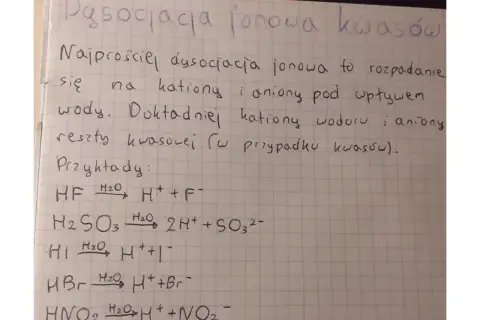 Dysocjacja jonowa kwasów
Najprościej dysocjacja jonowa to rozpadanie
się na kationy i aniony pod wpływem
wody. Dokładniej kationy wodoru i aniony
reszty kwasowej (w przypadku kwasów).
Przykłady:
HF H2O→ H⁺ + F⁻
H2SO3 H2O→ 2H⁺ + SO3²⁻
HI H2O→ H⁺+I⁻
HBr H2O→ H⁺+Br⁻
HNO2 H2O→ H⁺ + NO2⁻